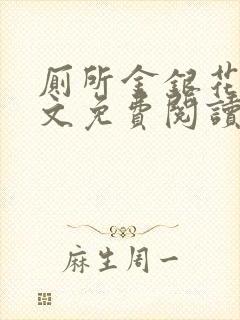 厕所金银花
文免费阅读
麻生周一